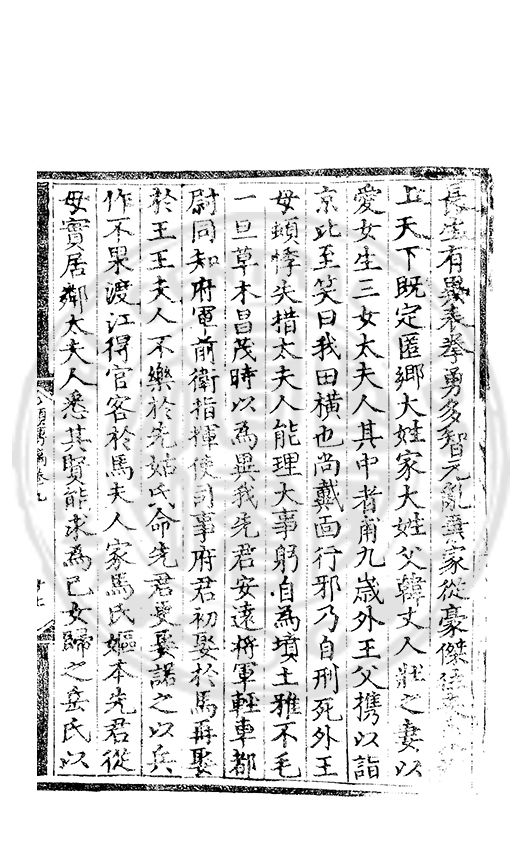 長生有異表拳勇多智元亂棄家從豪傑
上天下既定匿鄉大姓家大姓父韓丈人壯之妻以
愛女生三女太夫人其中者甫九歲外王父携以詣
京北至笑曰我田横也尚戴面行邪乃自刑死外王
母頓悸失措太夫人能理大事躬自為墳土雅不毛
一旦草木昌茂時以為異我先君安遠將軍輕車都
尉同知府軍前衛指揮使司事府君初娶於馬再娶
於王王夫人不樂於先姑氏命先君更娶諾之以兵
作不果渡江得官客於馬夫人家馬氏嫗本先君從
母實居鄰太夫人悉其賢能求為已女歸之岳氏以